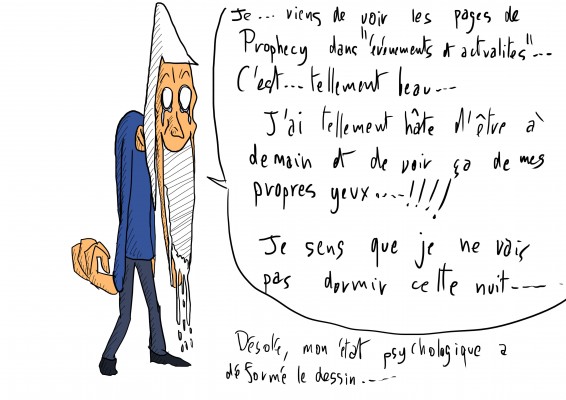 Je... viens de voir les pages de
Prophecy dans "événements et actualités"...
C'est... tellement beau...
J'ai tellement hâte d'être à
demain et de voir ça de mes
propres yeux....!!!!
Je sens que je ne vais
pas dormir cette nuit....
Désolé, mon état psychologique a
déformé le dessin.....